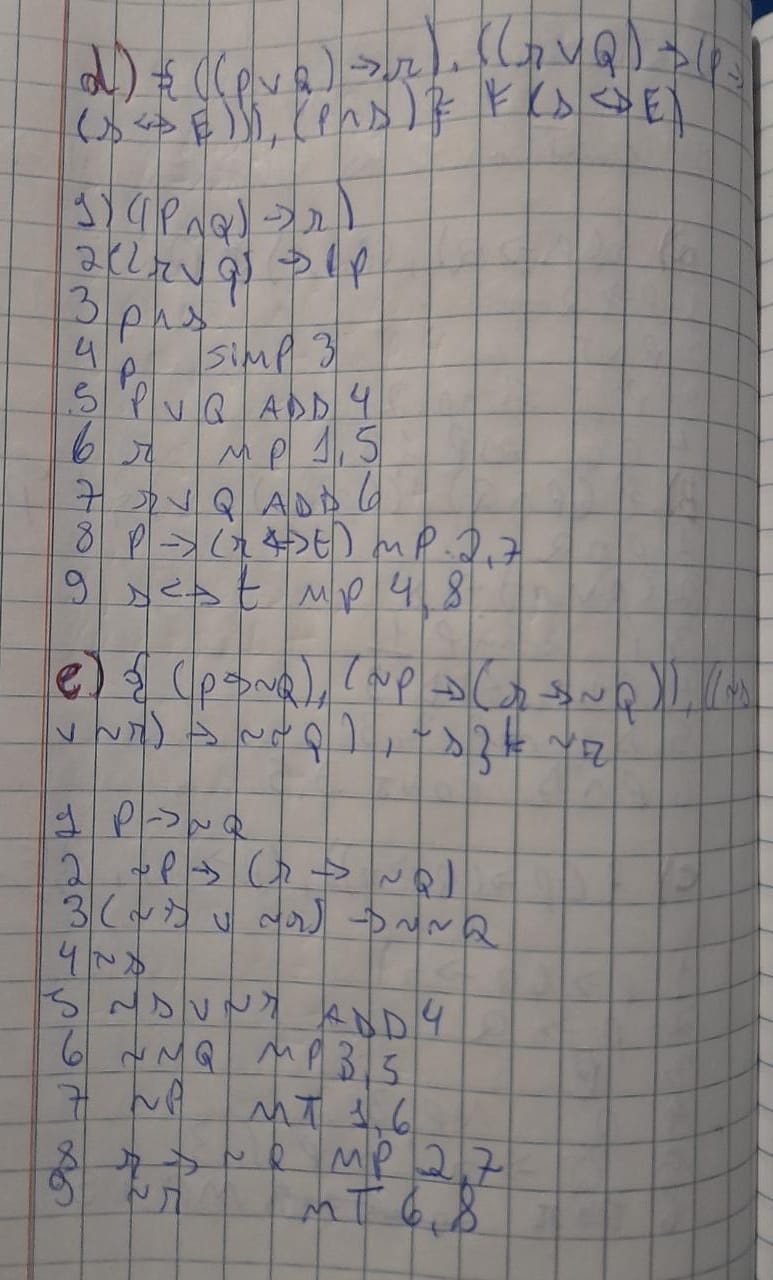 d) {((p ∨ Q) → r), ((r ∨ Q) → (p →
(s ↔ E))), (p ∧ s)} ⊧ (s ↔ E)
1) ((P ∧ Q) → r)
2 ((r ∨ q) → (p
3 p ∧ s
4 p SIMP 3
5 P ∨ Q ADD 4
6 r MP 1,5
7 r ∨ Q ADD 6
8 P → (r ↔ t) MP 2,7
9 s ↔ t MP 4,8
e) {(p → ~Q), (~P → (r → ~Q)), ((~s
∨ ~r) → ~~Q), ~s} ⊧ ~r
1 P → ~Q
2 ~P → (r → ~Q)
3 (~s ∨ ~r) → ~~Q
4 ~s
5 ~s ∨ ~r ADD 4
6 ~~Q MP 3,5
7 ~P MT 1,6
8 r → ~Q MP 2,7
9 ~r MT 6,8